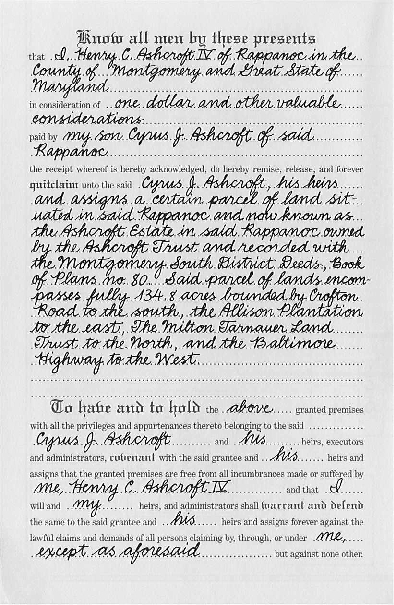 Know all men by these presents
that I, Henry C. Ashcroft IV of Rappanoc in the
County of Montgomery and Great State of
Maryland
in consideration of one dollar and other valuable
considerations
paid by my son Cyrus J. Ashcroft of said
Rappanoc
the receipt whereof is hereby acknowledged, do hereby remise, release, and forever
quitclaim unto the said Cyrus J. Ashcroft, his heirs
and assigns a certain parcel of land sit-
uated in said Rappanoc and now known as
the Ashcroft Estate in said Rappanoc owned
by the Ashcroft Trust and recorded with
the Montgomery South District Deeds, Book
of Plans no. 80. Said parcel of lands encom-
passes fully 134.8 acres bounded by Crofton
Road to the south, the Allison Plantation
to the east, The Milton Tarnauer Land
Trust to the North, and the Baltimore
Highway to the West.
To have and to hold the above granted premises
with all the privileges and appurtenances thereto belonging to the said
Cyrus J. Ashcroft and his heirs, executors
and administrators, covenant with the said grantee and his heirs and
assigns that the granted premises are free from all incumbrances made or suffered by
me, Henry C. Ashcroft IV and that I
will and my heirs, and administrators shall warrant and defend
the same to the said grantee and his heirs and assigns forever against the
lawful claims and demands of all persons claiming by, through, or under me,
except as aforesaid but against none other.